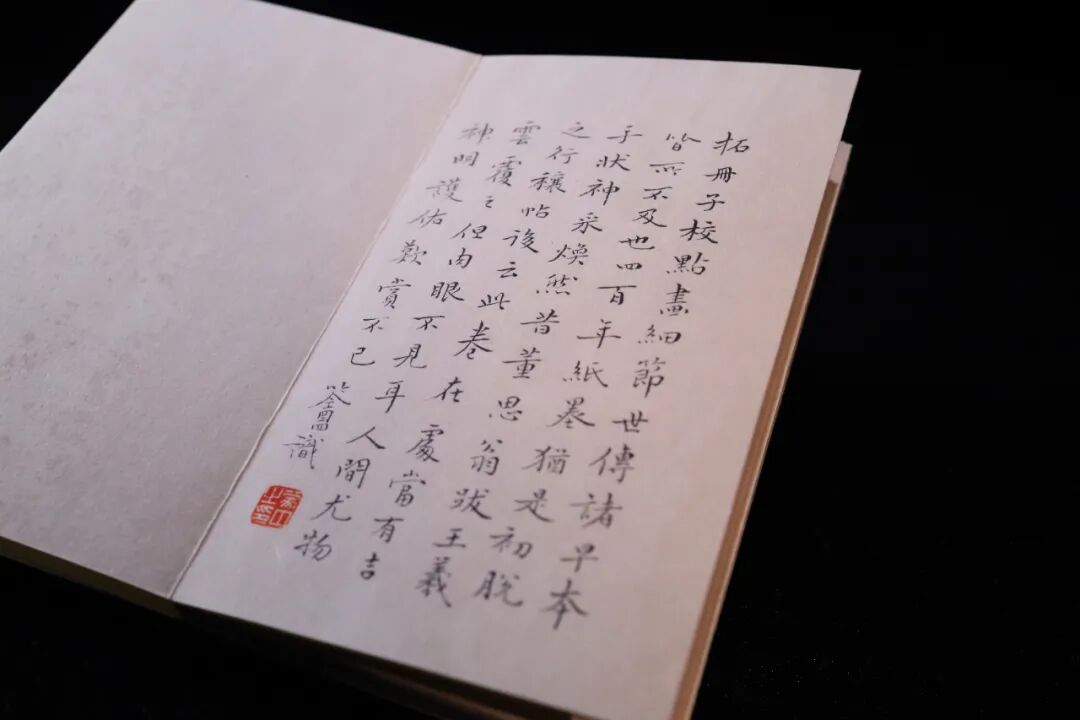 拓冊子校點畫細節世傳諸早本
皆所不及也四百年紙墨猶是初脫
手狀神采煥然昔董思翁跋王羲
之行穰帖後云此卷在處當有吉
雲覆之但肉眼不見耳人間尤物
神明護佑歎賞不已 識